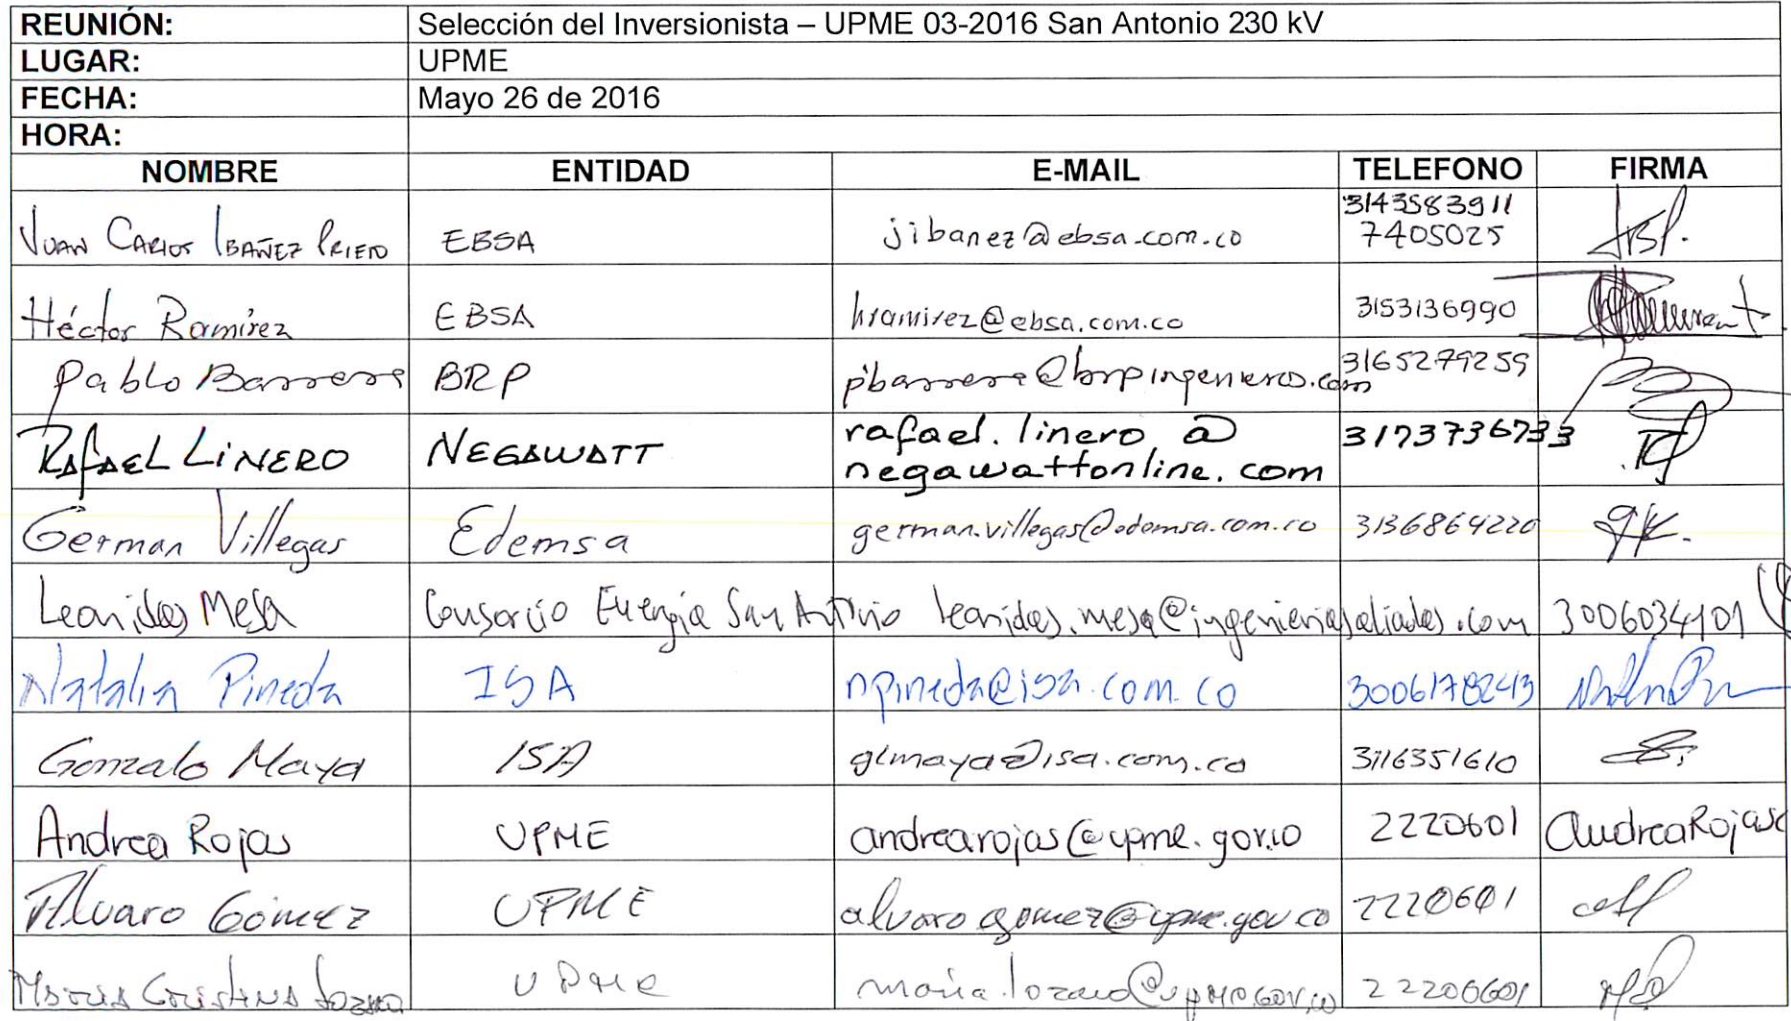 REUNIÓN: Selección del Inversionista – UPME 03-2016 San Antonio 230 kV
LUGAR: UPME
FECHA: Mayo 26 de 2016
HORA:
NOMBRE ENTIDAD E-MAIL TELEFONO FIRMA
Juan Carlos Ibañez Prieto EBSA jibanez@ebsa.com.co 3143583911
7405025
Héctor Ramírez EBSA hramirez@ebsa.com.co 3153136990
Pablo Barrera BRP pbarrera@brpingenieros.com 3165279259
Rafael Linero NEGAWATT rafael.linero@ 3173736733
negawattonline.com
German Villegas Edemsa german.villegas@edemsa.com.co 3136864220
Leonidas Mesa Consorcio Energia San Antonio leonidas.mesa@ingenieriasaliadas.com 3006034101
Natalia Pineda ISA npineda@isa.com.co 3006178243
Gonzalo Maya ISA glmaya@isa.com.co 3116351610
Andrea Rojas UPME andrearojas@upme.gov.co 2220601 Andrea Rojas
Alvaro Gómez UPME alvaro.gomez@upme.gov.co 2220601
Maria Cristina Lozano UPME maria.lozano@upme.gov.co 2220601